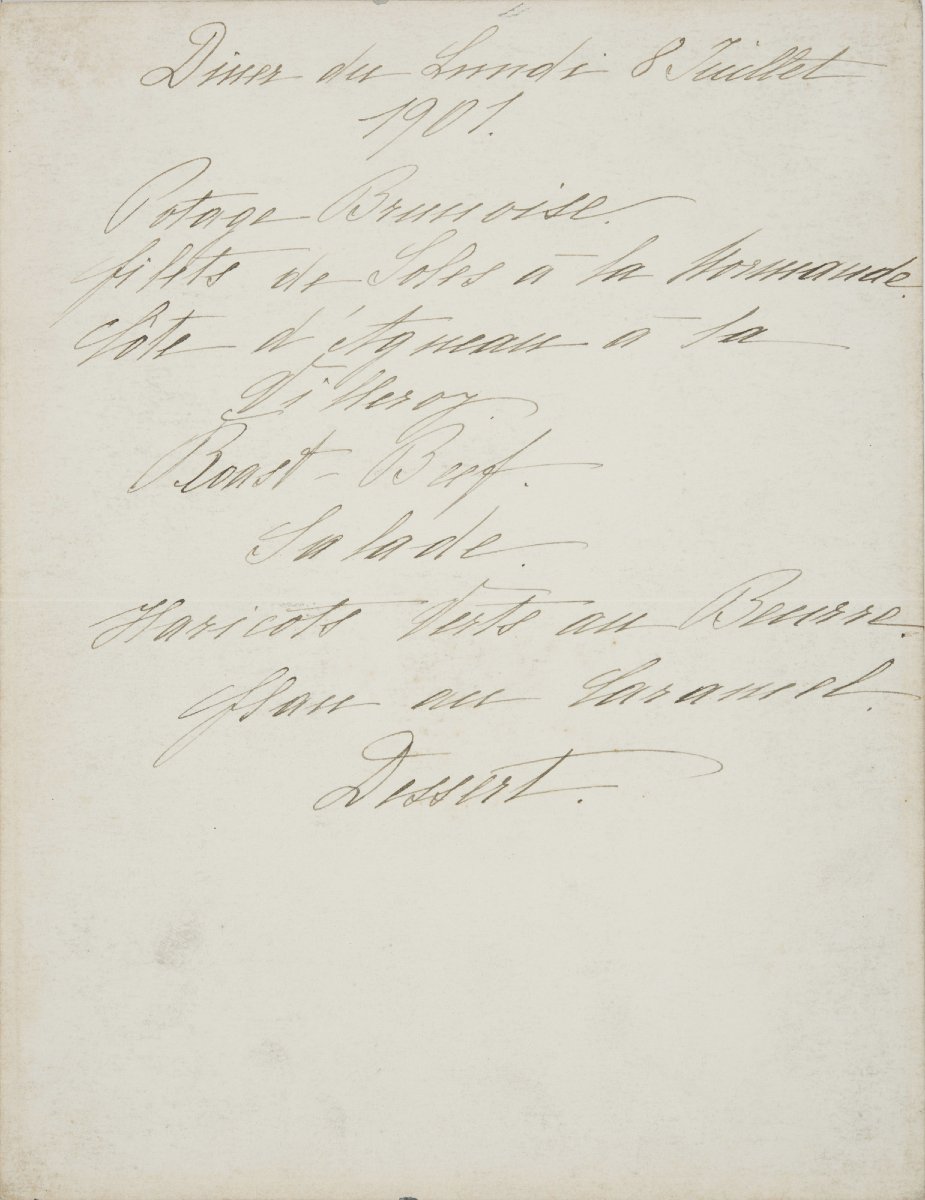 Diner du Lundi 8 Juillet
1901.
Potage Brunoise.
filets de Soles à la Normande.
Côte d'Agneau à la
Villeroy.
Roast-Beef.
Salade.
Haricots Verts au Beurre.
flan au Caramel.
Dessert.